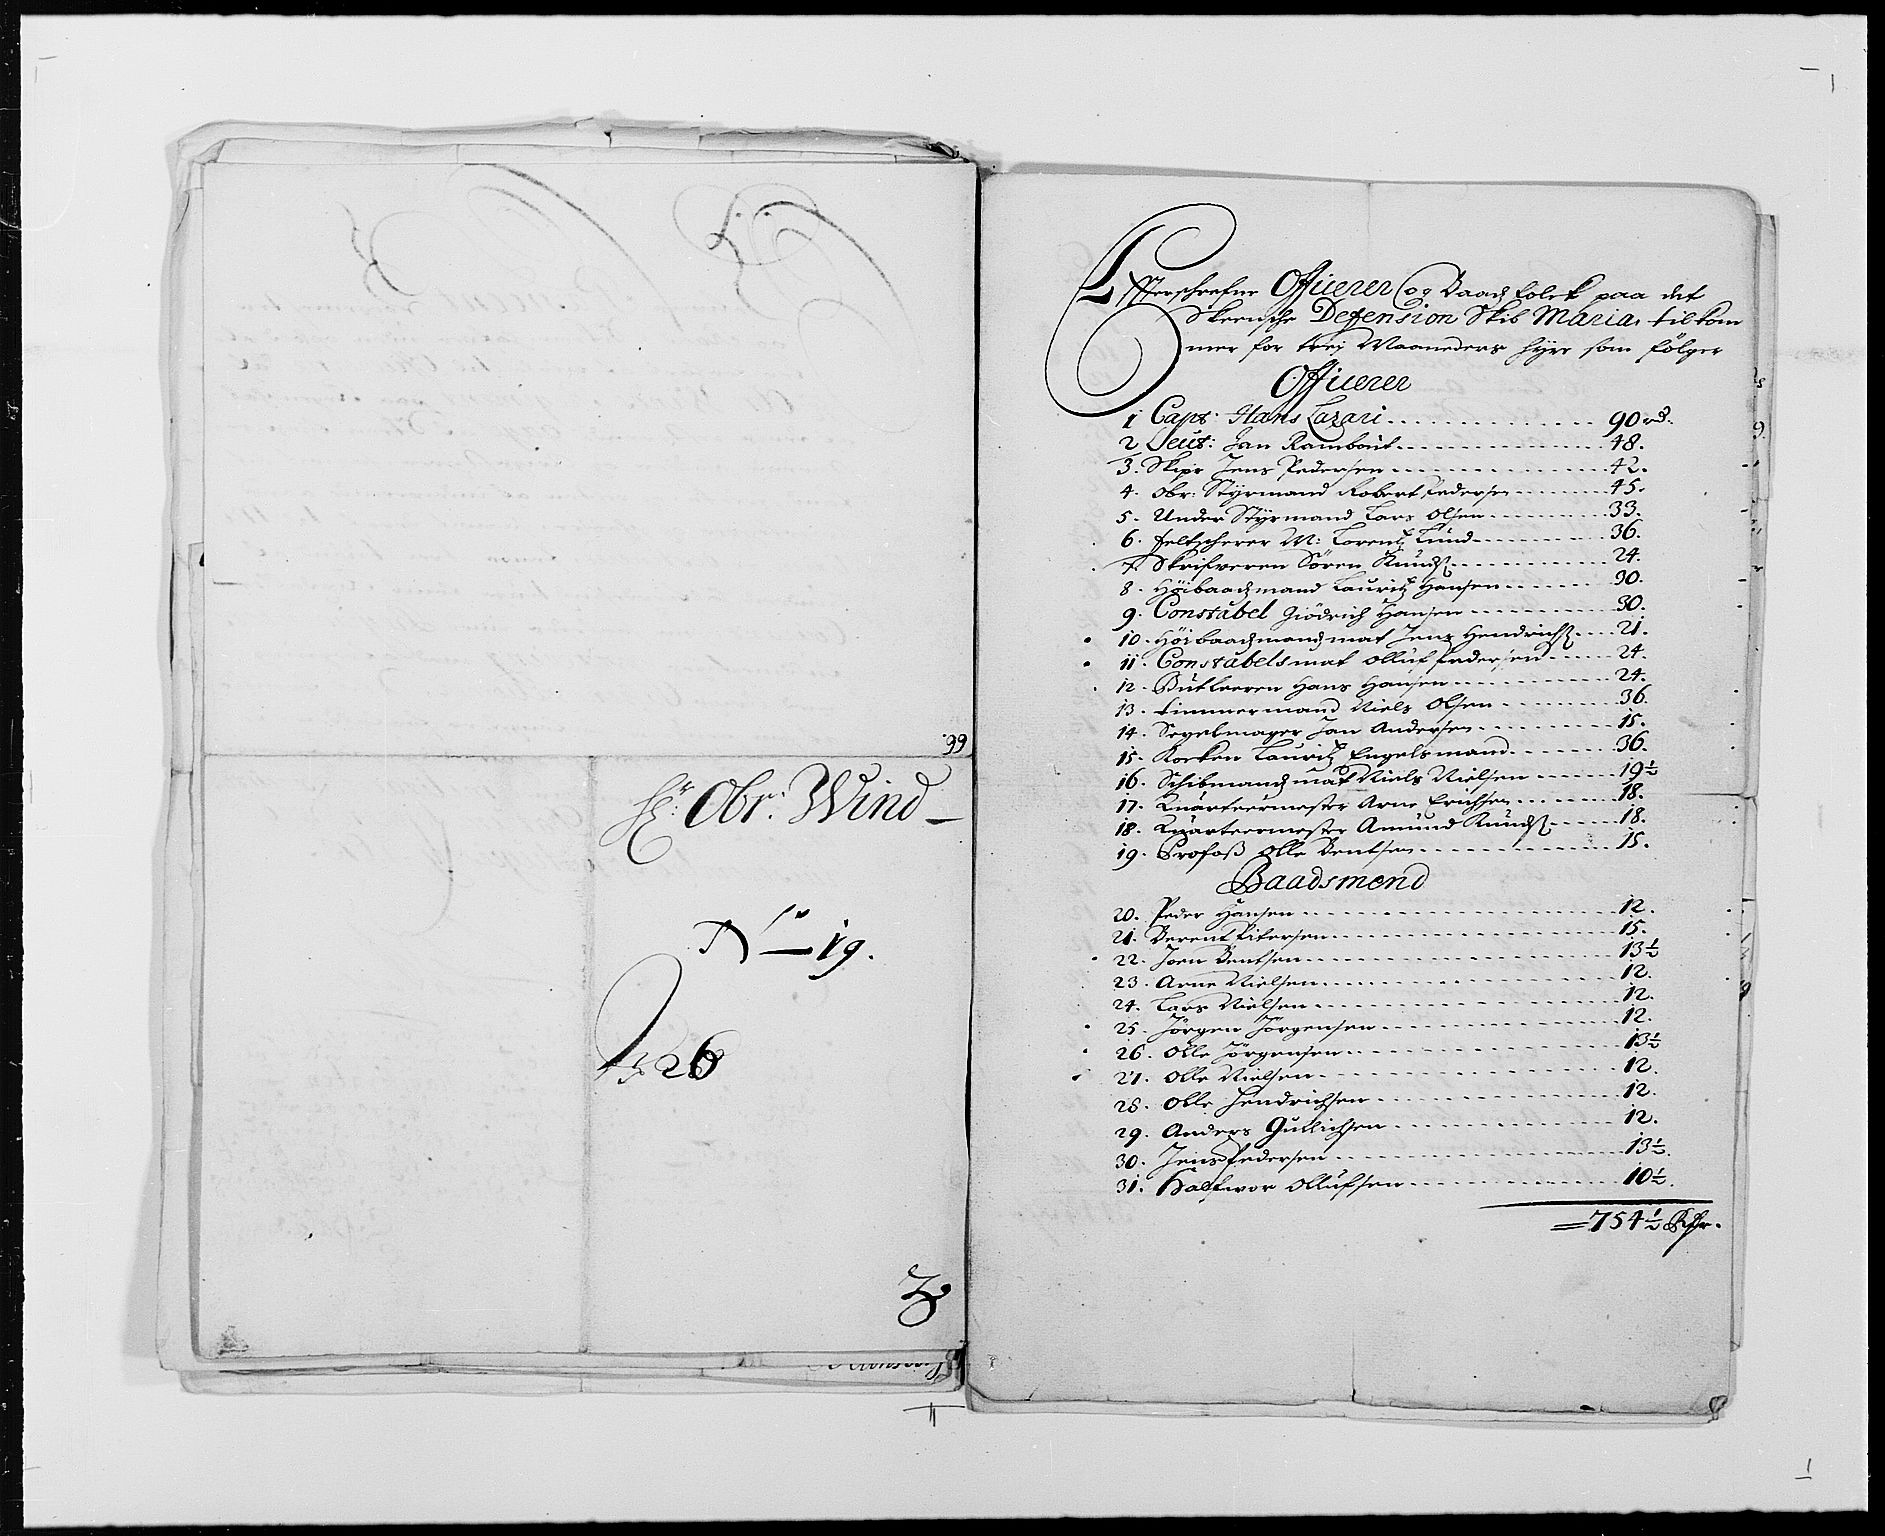 99.
Hr: Obr: Wind
No 19.
26
Efferschrefne Officerer og Baadz folck paa det
Skeensche Defension Skib Maria, tilkom
mer for trej Maaneders hÿre som fölger
Officerer
1 Capt: Hans Lazari ............... 90 rd.
2 Leut: Jan Rambout ............... 48.
3. Skipr Jens Pedersen ............... 42.
4. Obr: Stÿrmand Robert Pedersen ............... 45.
5. Under Stÿrmand Lars Olsen ............... 33.
6. Feltscherer M: Lorentz Lund ............... 36.
7. Skrifveren Sören Knudsz ............... 24.
8. Höibaadzmand Lauritz Hansen ............... 30.
9. Constabel Giödrich Hansen ............... 30.
10. Höibaadzmandz mat Jens Hendrichsz ............... 21.
11. Constabels mat Olluf Pedersen ............... 24.
12. Butleeren Hans Hansen ............... 24.
13. Timmermand Niels Olsen ............... 36.
14. Segelmager Jan Andersen ............... 15.
15. Kocken Lauritz Engelsmand ............... 36.
16. Schibmandz mat Niels Nielsen ............... 19½
17. Quarteermester Arne Erichsen ............... 18.
18. Quarteermester Amund Knudsz ............... 18.
19. Profoß Olle Bentsen ............... 15.
Baadsmend
20. Peder Hansen ............... 12.
21. Berent Pitersen ............... 15.
22. Joen Bentsen ............... 13½
23. Arne Nielsen ............... 12.
24. Lars Nielsen ............... 12.
25. Jörgen Jörgensen ............... 12.
26. Olle Jörgensen ............... 13½
27. Olle Nielsen ............... 12.
28. Olle Hendrichsen ............... 12.
29. Anders Gullichsen ............... 12.
30. Jens Pedersen ............... 13½.
31. Halfwor Ollufsen ............... 10½.
= 754½ Rdr.